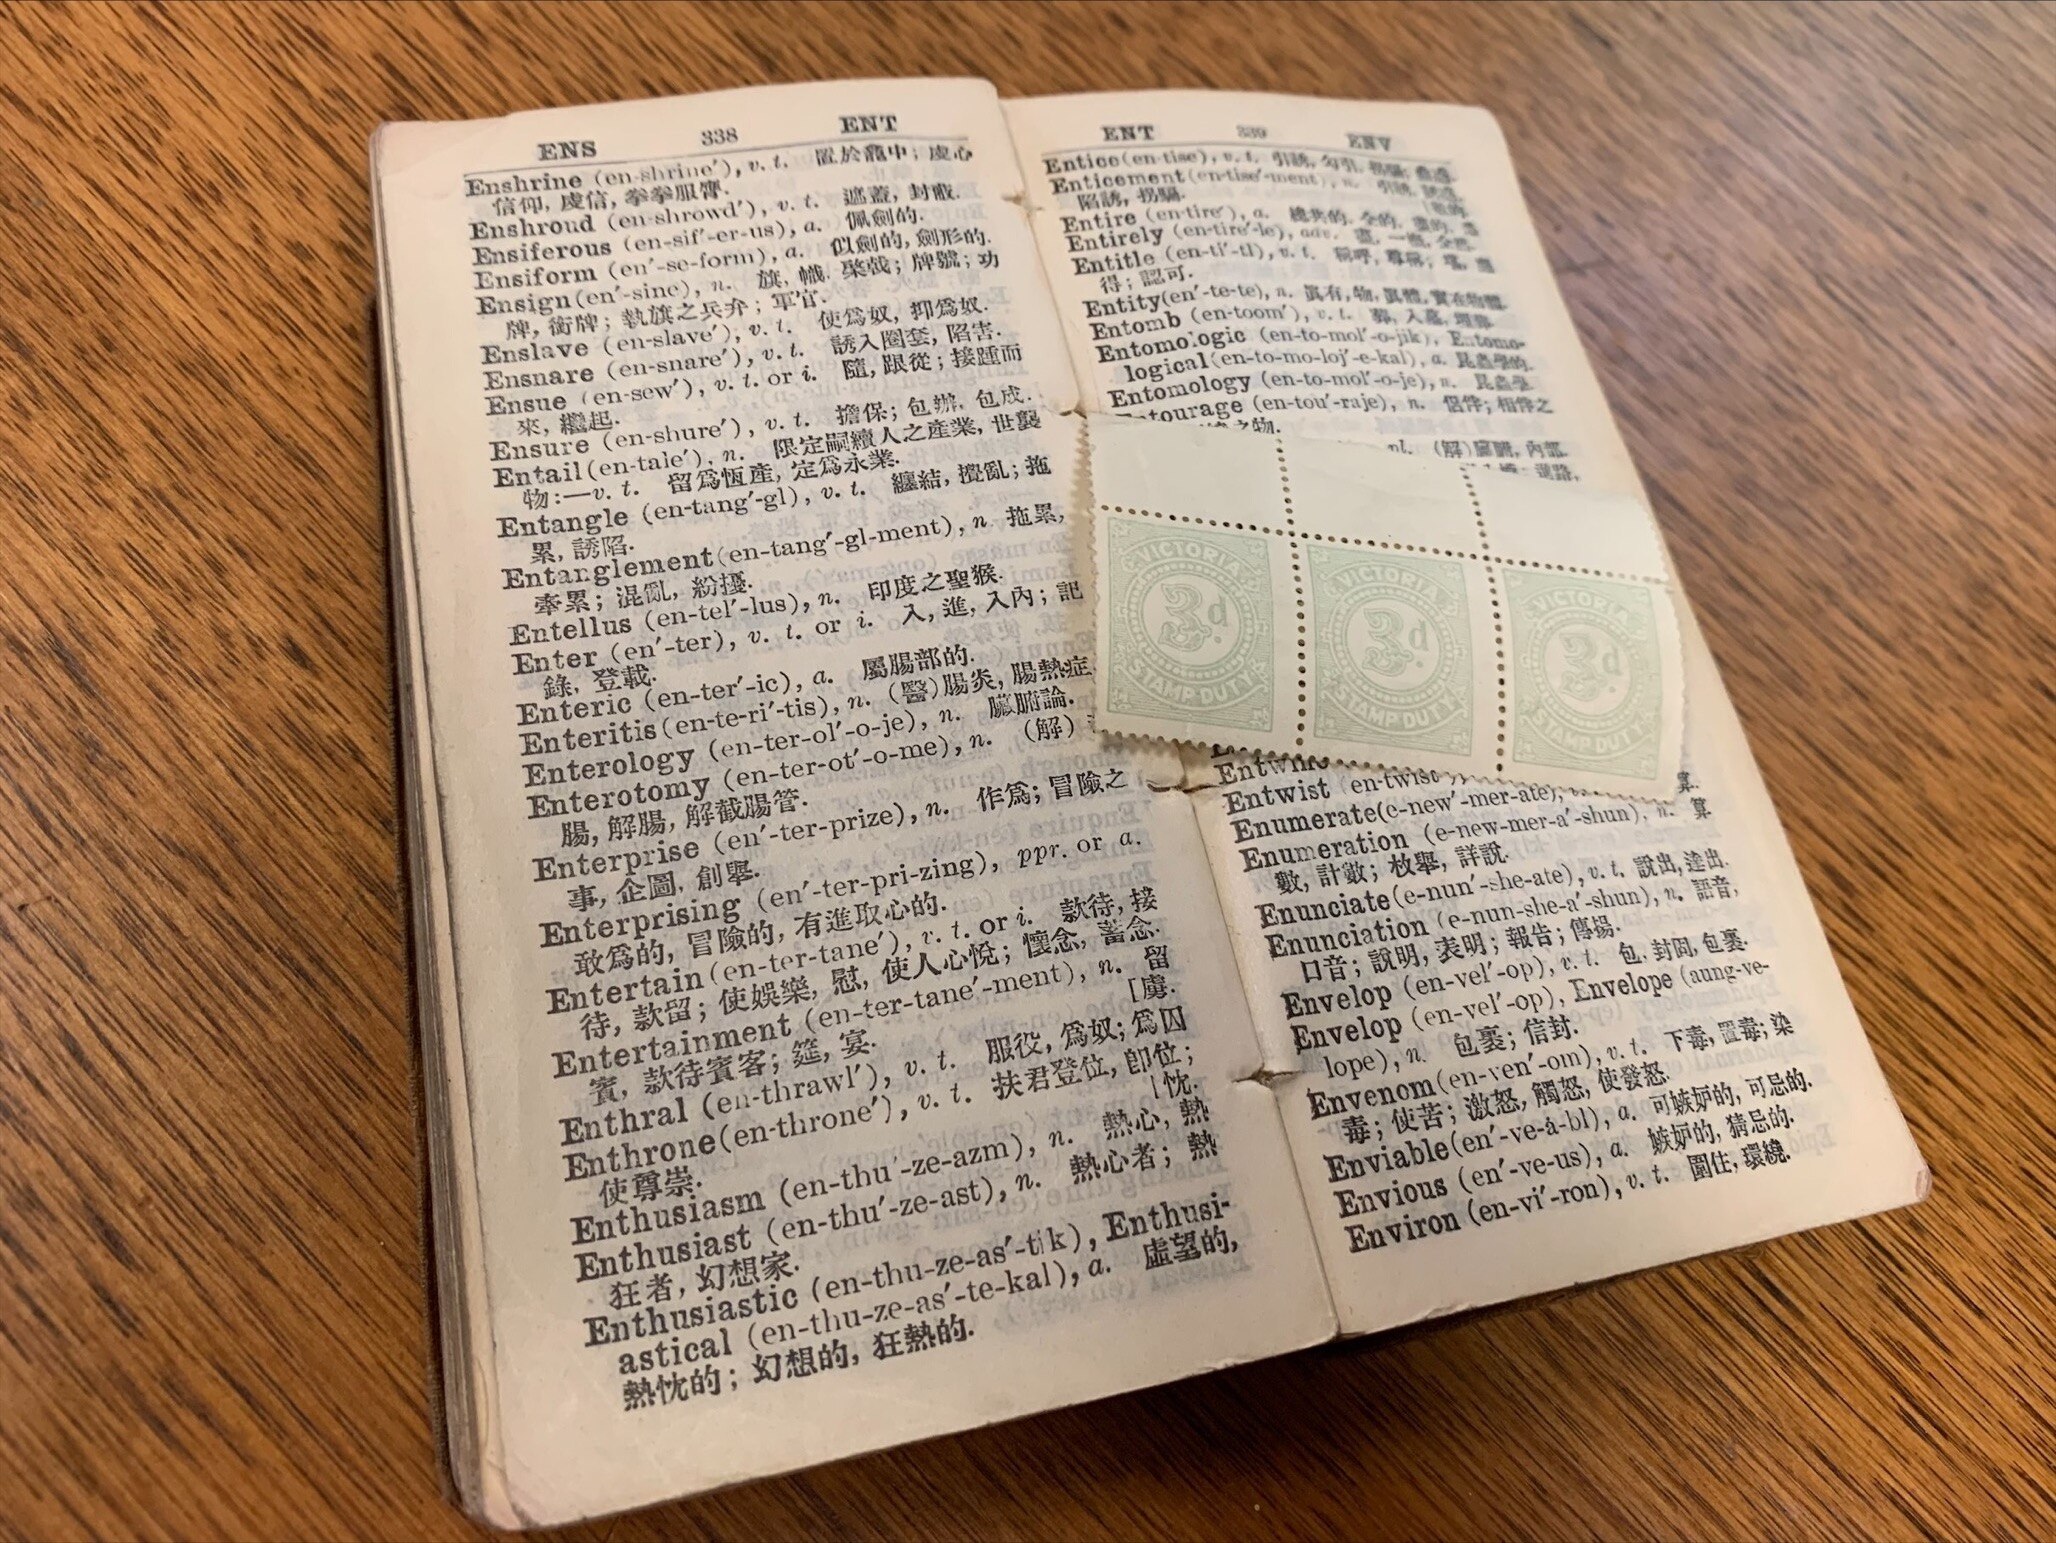 ENS 338 ENT
Enshrine (en-shrine′), v. t. 置於龕中; 虔心
信仰, 虔信, 拳拳服膺.
Enshroud (en-shrowd′), v. t. 遮蓋, 封蔽.
Ensiferous (en-sif′-er-us), a. 佩劍的.
Ensiform (en′-se-form), a. 似劍的, 劍形的.
Ensign (en′-sine), n. 旗, 幟, 棨戟; 牌號; 功
牌, 銜牌; 執旗之兵弁; 軍官.
Enslave (en-slave′), v. t. 使爲奴, 抑爲奴.
Ensnare (en-snare′), v. t. 誘入圈套, 陷害.
Ensue (en-sew′), v. t. or i. 隨, 跟從; 接踵而
來, 繼起.
Ensure (en-shure′), v. t. 擔保; 包辦, 包成.
Entail (en-tale′), n. 限定嗣續人之產業, 世襲
物:—v. t. 留爲恆產, 定爲永業.
Entangle (en-tang′-gl), v. t. 纏結, 攪亂; 拖
累, 誘陷.
Entanglement (en-tang′-gl-ment), n 拖累,
牽累; 混亂, 紛擾.
Entellus (en-tel′-lus), n. 印度之聖猴.
Enter (en′-ter), v. t. or i. 入, 進, 入內; 記
錄, 登載.
Enteric (en-ter′-ic), a. 屬腸部的.
Enteritis (en-te-ri′-tis), n. (醫) 腸炎, 腸熱症
Enterology (en-ter-ol′-o-je), n. 臟腑論.
Enterotomy (en-ter-ot′-o-me), n. (解)
腸, 解腸, 解截腸管.
Enterprise (en′-ter-prize), n. 作爲; 冒險之
事, 企圖, 創舉.
Enterprising (en′-ter-pri-zing), ppr. or a.
敢爲的, 冒險的, 有進取心的.
Entertain (en-ter-tane′), v. t. or i. 款待, 接
待, 款留; 使娛樂, 慰, 使人心悅; 懷念, 蓄念.
Entertainment (en-ter-tane′-ment), n. 留
賓, 款待賓客; 筵, 宴. [虜.
Enthral (en-thrawl′), v. t. 服役, 爲奴; 爲囚
Enthrone (en-throne′), v. t. 扶君登位, 卽位;
使尊崇. [忱.
Enthusiasm (en-thu′-ze-azm), n. 熱心, 熱
Enthusiast (en-thu′-ze-ast), n. 熱心者; 熱
狂者, 幻想家.
Enthusiastic (en-thu-ze-as′-tik), Enthusi-
astical (en-thu-ze-as′-te-kal), a. 虛望的,
熱忱的; 幻想的, 狂熱的.
ENT 339 ENV
Entice (en-tise), v. t. 引誘, 勾引,
Enticement (en-tise′-ment), n. 引誘,
陷誘, 拐騙.
Entire (en-tire′), a. 總共的, 全的,
Entirely (en-tire′-le), adv. 盡, 一概,
Entitle (en-ti′-tl), v. t. 稱呼,
得; 認可.
Entity (en′-te-te), n. 眞有, 物, 眞體, 實在物體.
Entomb (en-toom′), v. t. 葬, 入墓,
Entomologic (en-to-mol′-o-jik), Entomo-
logical (en-to-mo-loj′-e-kal), a. 昆蟲學的.
Entomology (en-to-mol′-o-je), n. 昆蟲學.
Entourage (en-tou′-raje), n. 侶伴; 相伴之
之物.
pl. (解) 臟腑, 內部.
VICTORIA VICTORIA VICTORIA
3d 3d 3d
STAMP DUTY STAMP DUTY STAMP DUTY
Entwist (en-twist′),
Enumerate (e-new′-mer-ate), 算.
Enumeration (e-new-mer-a′-shun), n. 算
數, 計數; 枚舉, 詳說.
Enunciate (e-nun′-she-ate), v. t. 說出, 達出.
Enunciation (e-nun-she-a′-shun), n. 語音,
口音; 說明, 表明; 報告; 傳揚.
Envelop (en-vel′-op), v. t. 包, 封固, 包裹.
Envelop (en-vel′-op), Envelope (aung-ve-
lope), n. 包裹; 信封.
Envenom (en-ven′-om), v. t. 下毒, 置毒; 染
毒; 使苦; 激怒, 觸怒, 使發怒.
Enviable (en′-ve-á-bl), a. 可嫉妒的, 可忌的.
Envious (en′-ve-us), a. 嫉妒的, 猜忌的.
Environ (en-vi′-ron), v. t. 圍住, 環繞.